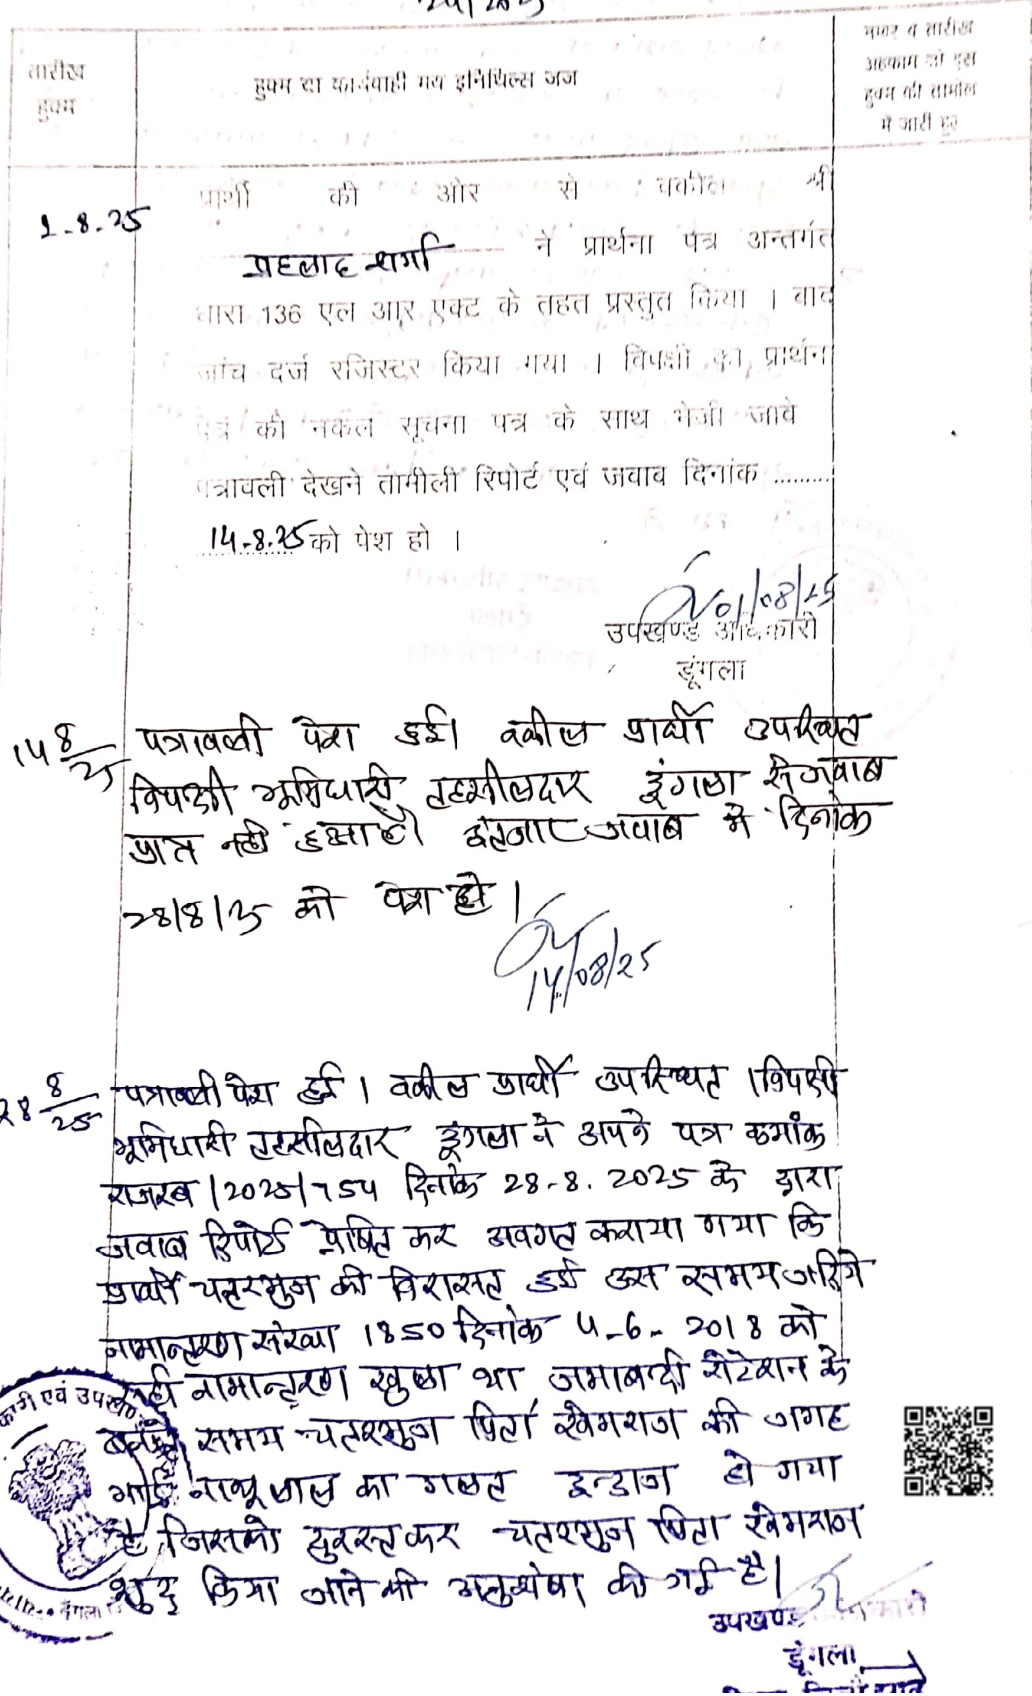 तारीख
हुक्म
हुक्म या कार्यवाही मय इनिशियल्स जज
नम्बर व तारीख
अहकाम जो इस
हुक्म की तामील
में जारी हुए
1-8-25
प्रार्थी की ओर से वकील श्री
प्रहलाद शर्मा ने प्रार्थना पत्र अन्तर्गत
धारा 136 एल आर एक्ट के तहत प्रस्तुत किया । वाद
जांच दर्ज रजिस्टर किया गया । विपक्षी का प्रार्थना
पत्र की नकल सूचना पत्र के साथ भेजी जावे
पत्रावली देखने तामीली रिपोर्ट एवं जवाब दिनांक .........
14-8-25 को पेश हो ।
01/08/25
उपखण्ड अधिकारी
डूंगला
14 8/25 पत्रावली पेश हुई। वकील प्रार्थी उपस्थित
विपक्षी भूमिधारी तहसीलदार डूंगला से जवाब
प्राप्त नही हुआ है। इन्तजार जवाब में दिनांक
28/8/25 को पेश हो |
14/08/25
28 8/25 पत्रावली पेश हुई । वकील प्रार्थी उपस्थित । विपक्षी
भूमिधारी तहसीलदार डूंगला ने अपने पत्र क्रमांक
राजस्व/2025/754 दिनांक 28-8.2025 के द्वारा
जवाब रिपोर्ट प्रेषित कर अवगत कराया गया कि
प्रार्थी चतरभुज की विरासत हुई उस समय जरिये
नामान्तरण संख्या 1850 दिनांक 4-6-2018 को
सही नामान्तरण खुला था जमाबन्दी सेग्रेशन के
समय चतरभुज पिता खेमराज की जगह
नाथूलाल का गलत इन्द्राज हो गया
है जिसको दुरस्त कर चतरभुज पिता खेमराज
शुद्ध किया जाने की अनुशंषा की गई है।
उपखण्ड अधिकारी
डूंगला